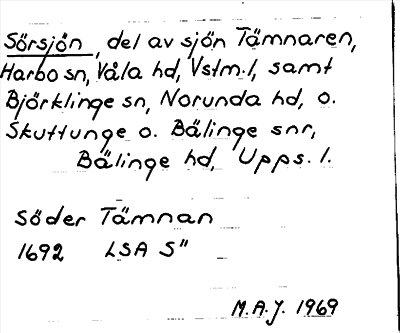 Sörsjön, del av sjön Tämnaren,
Harbo sn, Våla hd, Vstm.l, samt
Björklinge sn, Norunda hd, o.
Skuttunge o. Bälinge snr,
Bälinge hd, Upps. l.
Söder Tämnan
1692 LSA S"
M.A.J. 1969